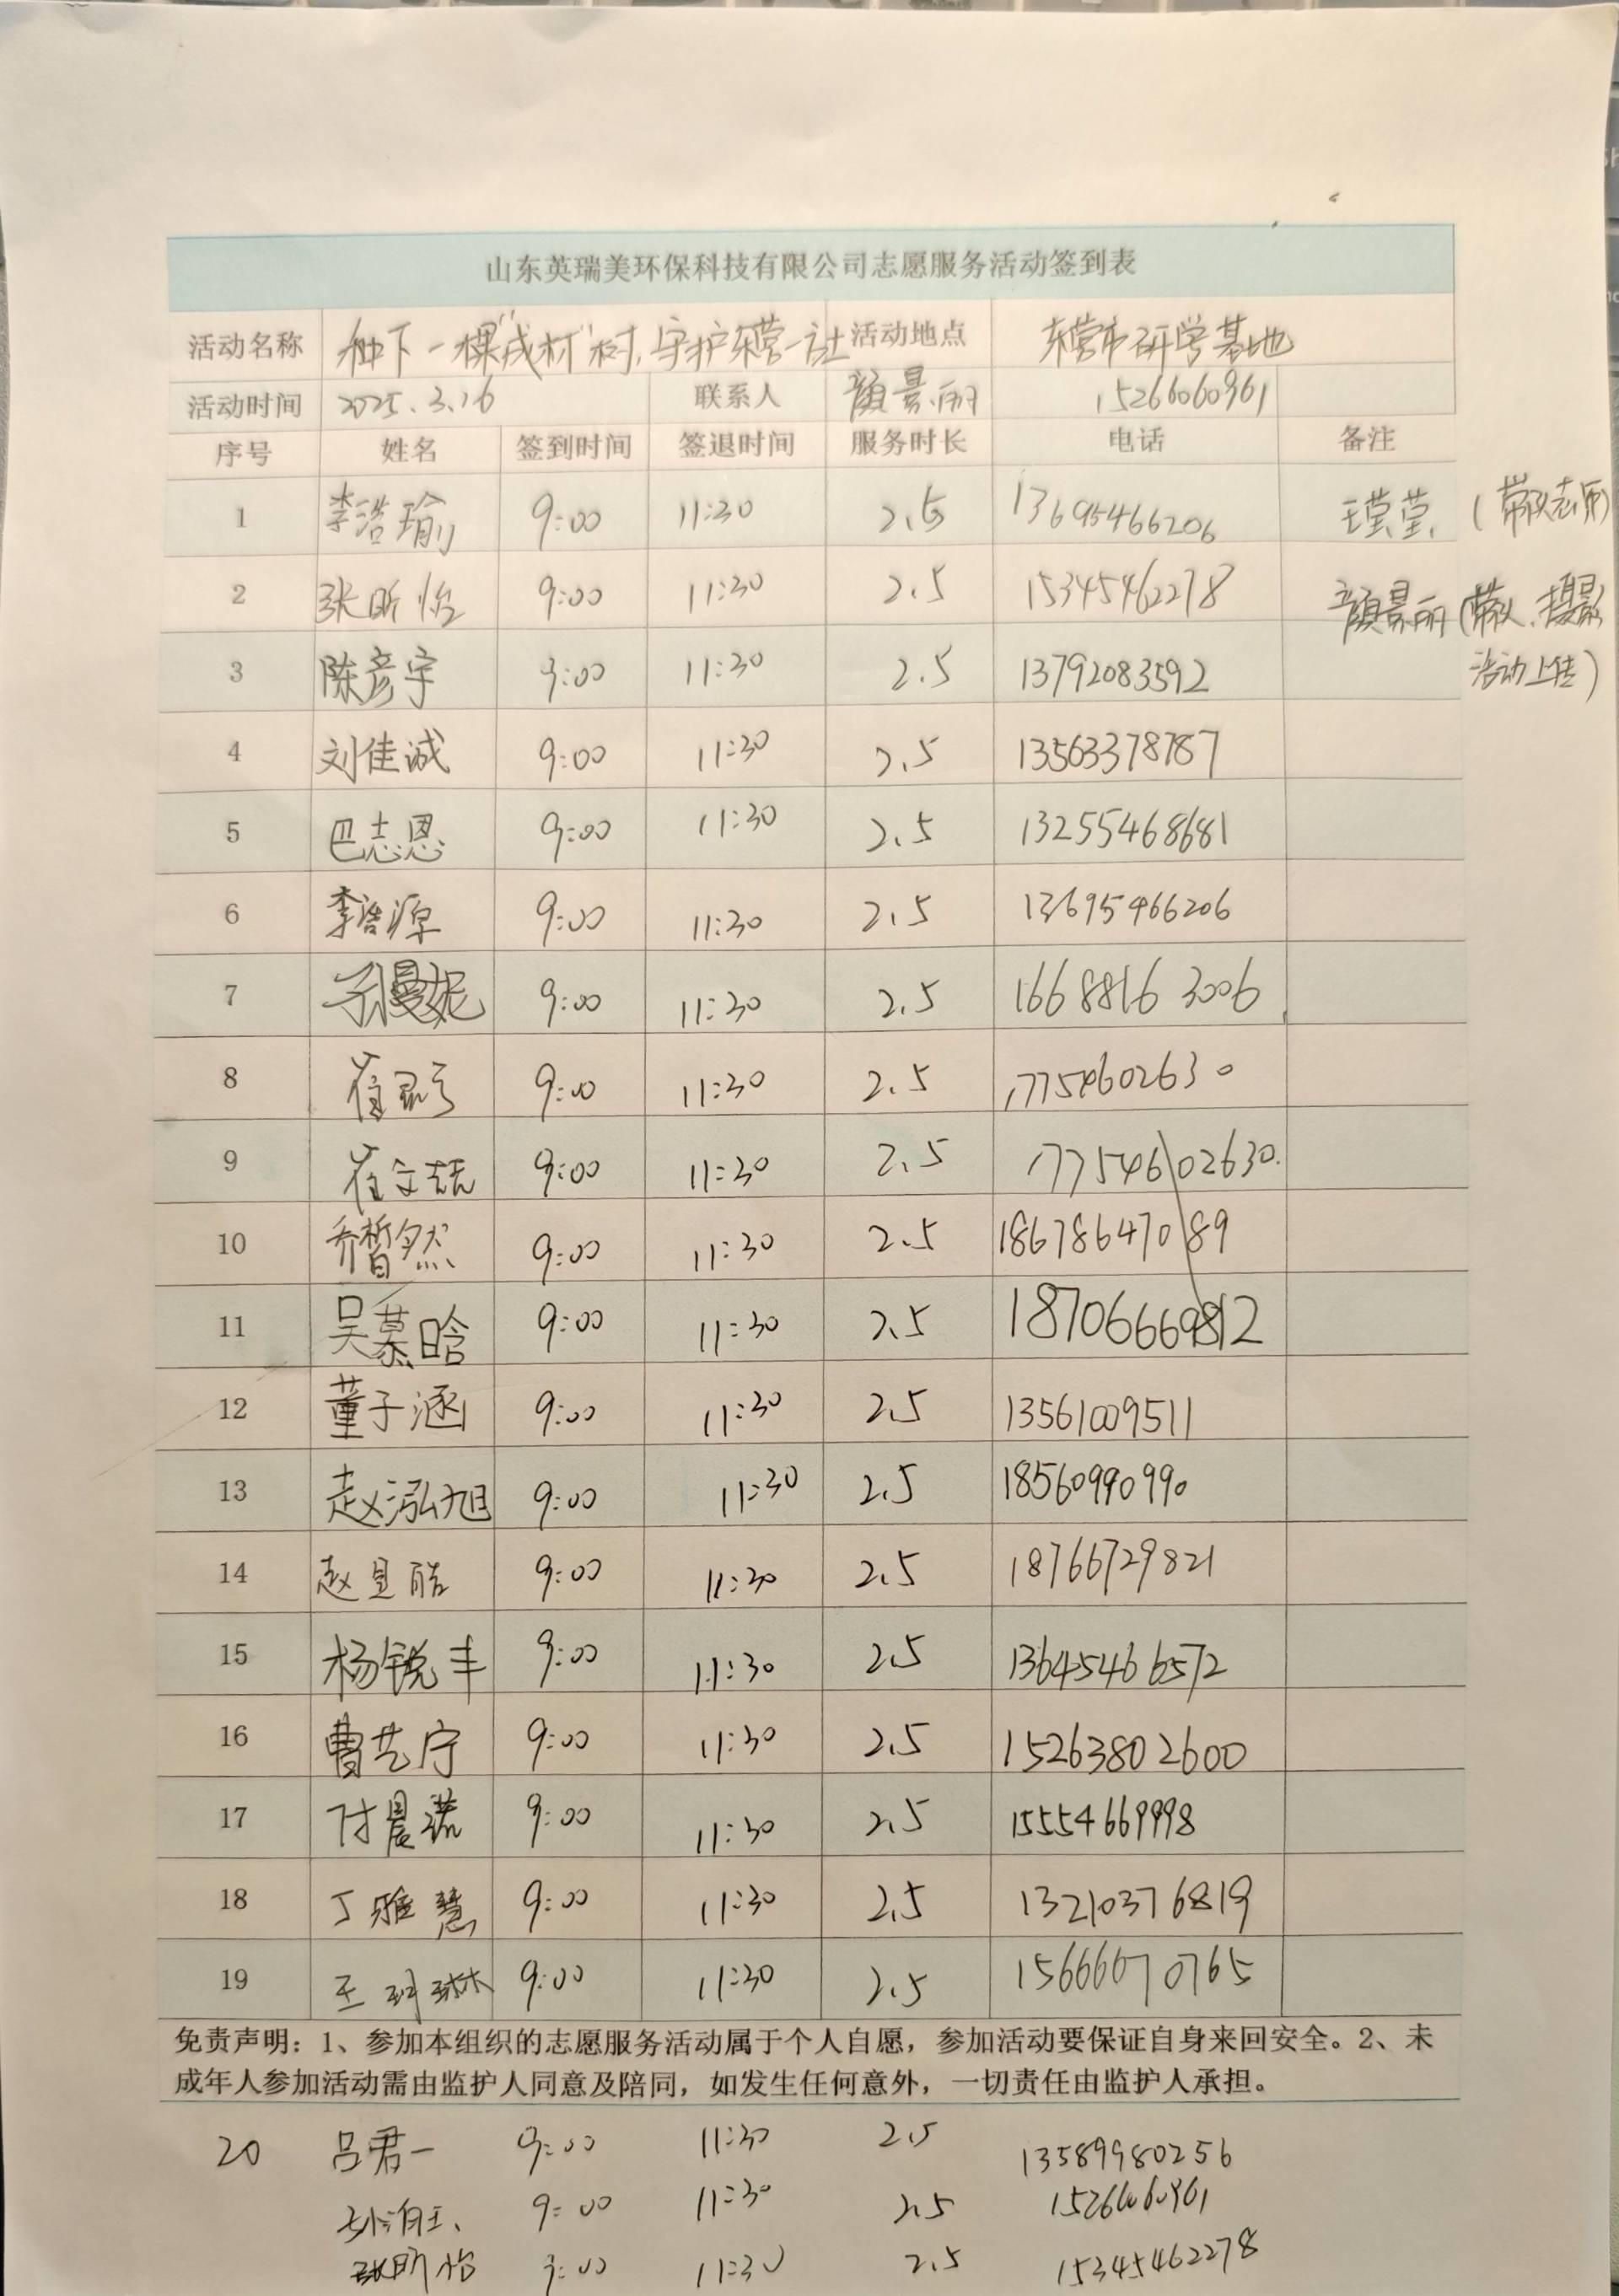 山东英瑞美环保科技有限公司志愿服务活动签到表
活动名称 种下一棵"成材"树,守护东营一让 活动地点 东营市研学基地
活动时间 2025.3.16 联系人 颜景丽 15266060961
序号 姓名 签到时间 签退时间 服务时长 电话 备注
1 李浩瑜 9:00 11:30 2.5 13695466206 王莹莹、(带队老师)
2 张昕怡 9:00 11:30 2.5 15345462278 颜景丽(带队、摄影
3 陈彦宇 9:00 11:30 2.5 13792083592 活动上传)
4 刘佳诚 9:00 11:30 2.5 13563378787
5 巴志恩 9:00 11:30 2.5 13255468681
6 李浩源 9:00 11:30 2.5 13695466206
7 9:00 11:30 2.5 16688163006
8 崔 9:00 11:30 2.5 17754602630
9 崔文喆 9:00 11:30 2.5 17754602630.
10 乔皙然 9:00 11:30 2.5 18678647089
11 吴慕晗 9:00 11:30 2.5 18706669812
12 董子涵 9:00 11:30 2.5 13561009511
13 赵泓旭 9:00 11:30 2.5 18560990990
14 赵显皓 9:00 11:30 2.5 18766729821
15 杨锐丰 9:00 11:30 2.5 13645466572
16 曹艺宁 9:00 11:30 2.5 15263802600
17 付晨 9:00 11:30 2.5 15554669998
18 丁雅慧 9:00 11:30 2.5 13210376819
19 王珂琳 9:00 11:30 2.5 15666670765
免责声明：1、参加本组织的志愿服务活动属于个人自愿，参加活动要保证自身来回安全。2、未
成年人参加活动需由监护人同意及陪同，如发生任何意外，一切责任由监护人承担。
20 吕君一 9:00 11:30 2.5 13589980256
9:00 11:30 2.5 15266060961
张昕怡 9:00 11:30 2.5 15345462278